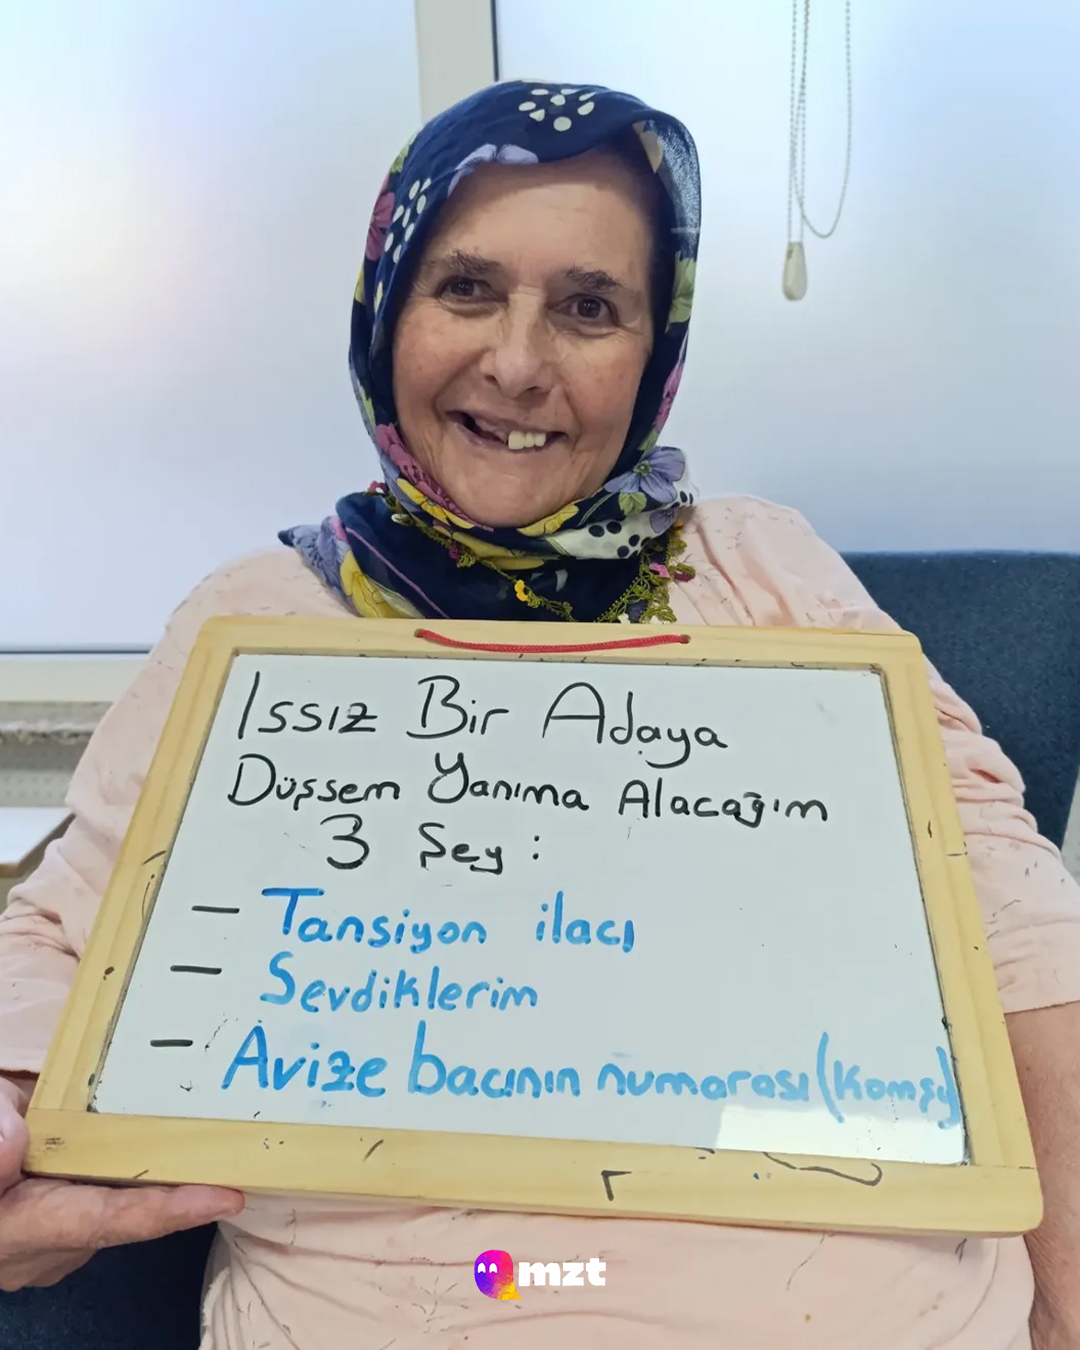 Issız Bir Adaya
Düşsem Yanıma Alacağım
3 Şey :
— Tansiyon ilacı
— Sevdiklerim
— Avize bacının numarası (Komşu)
mzt